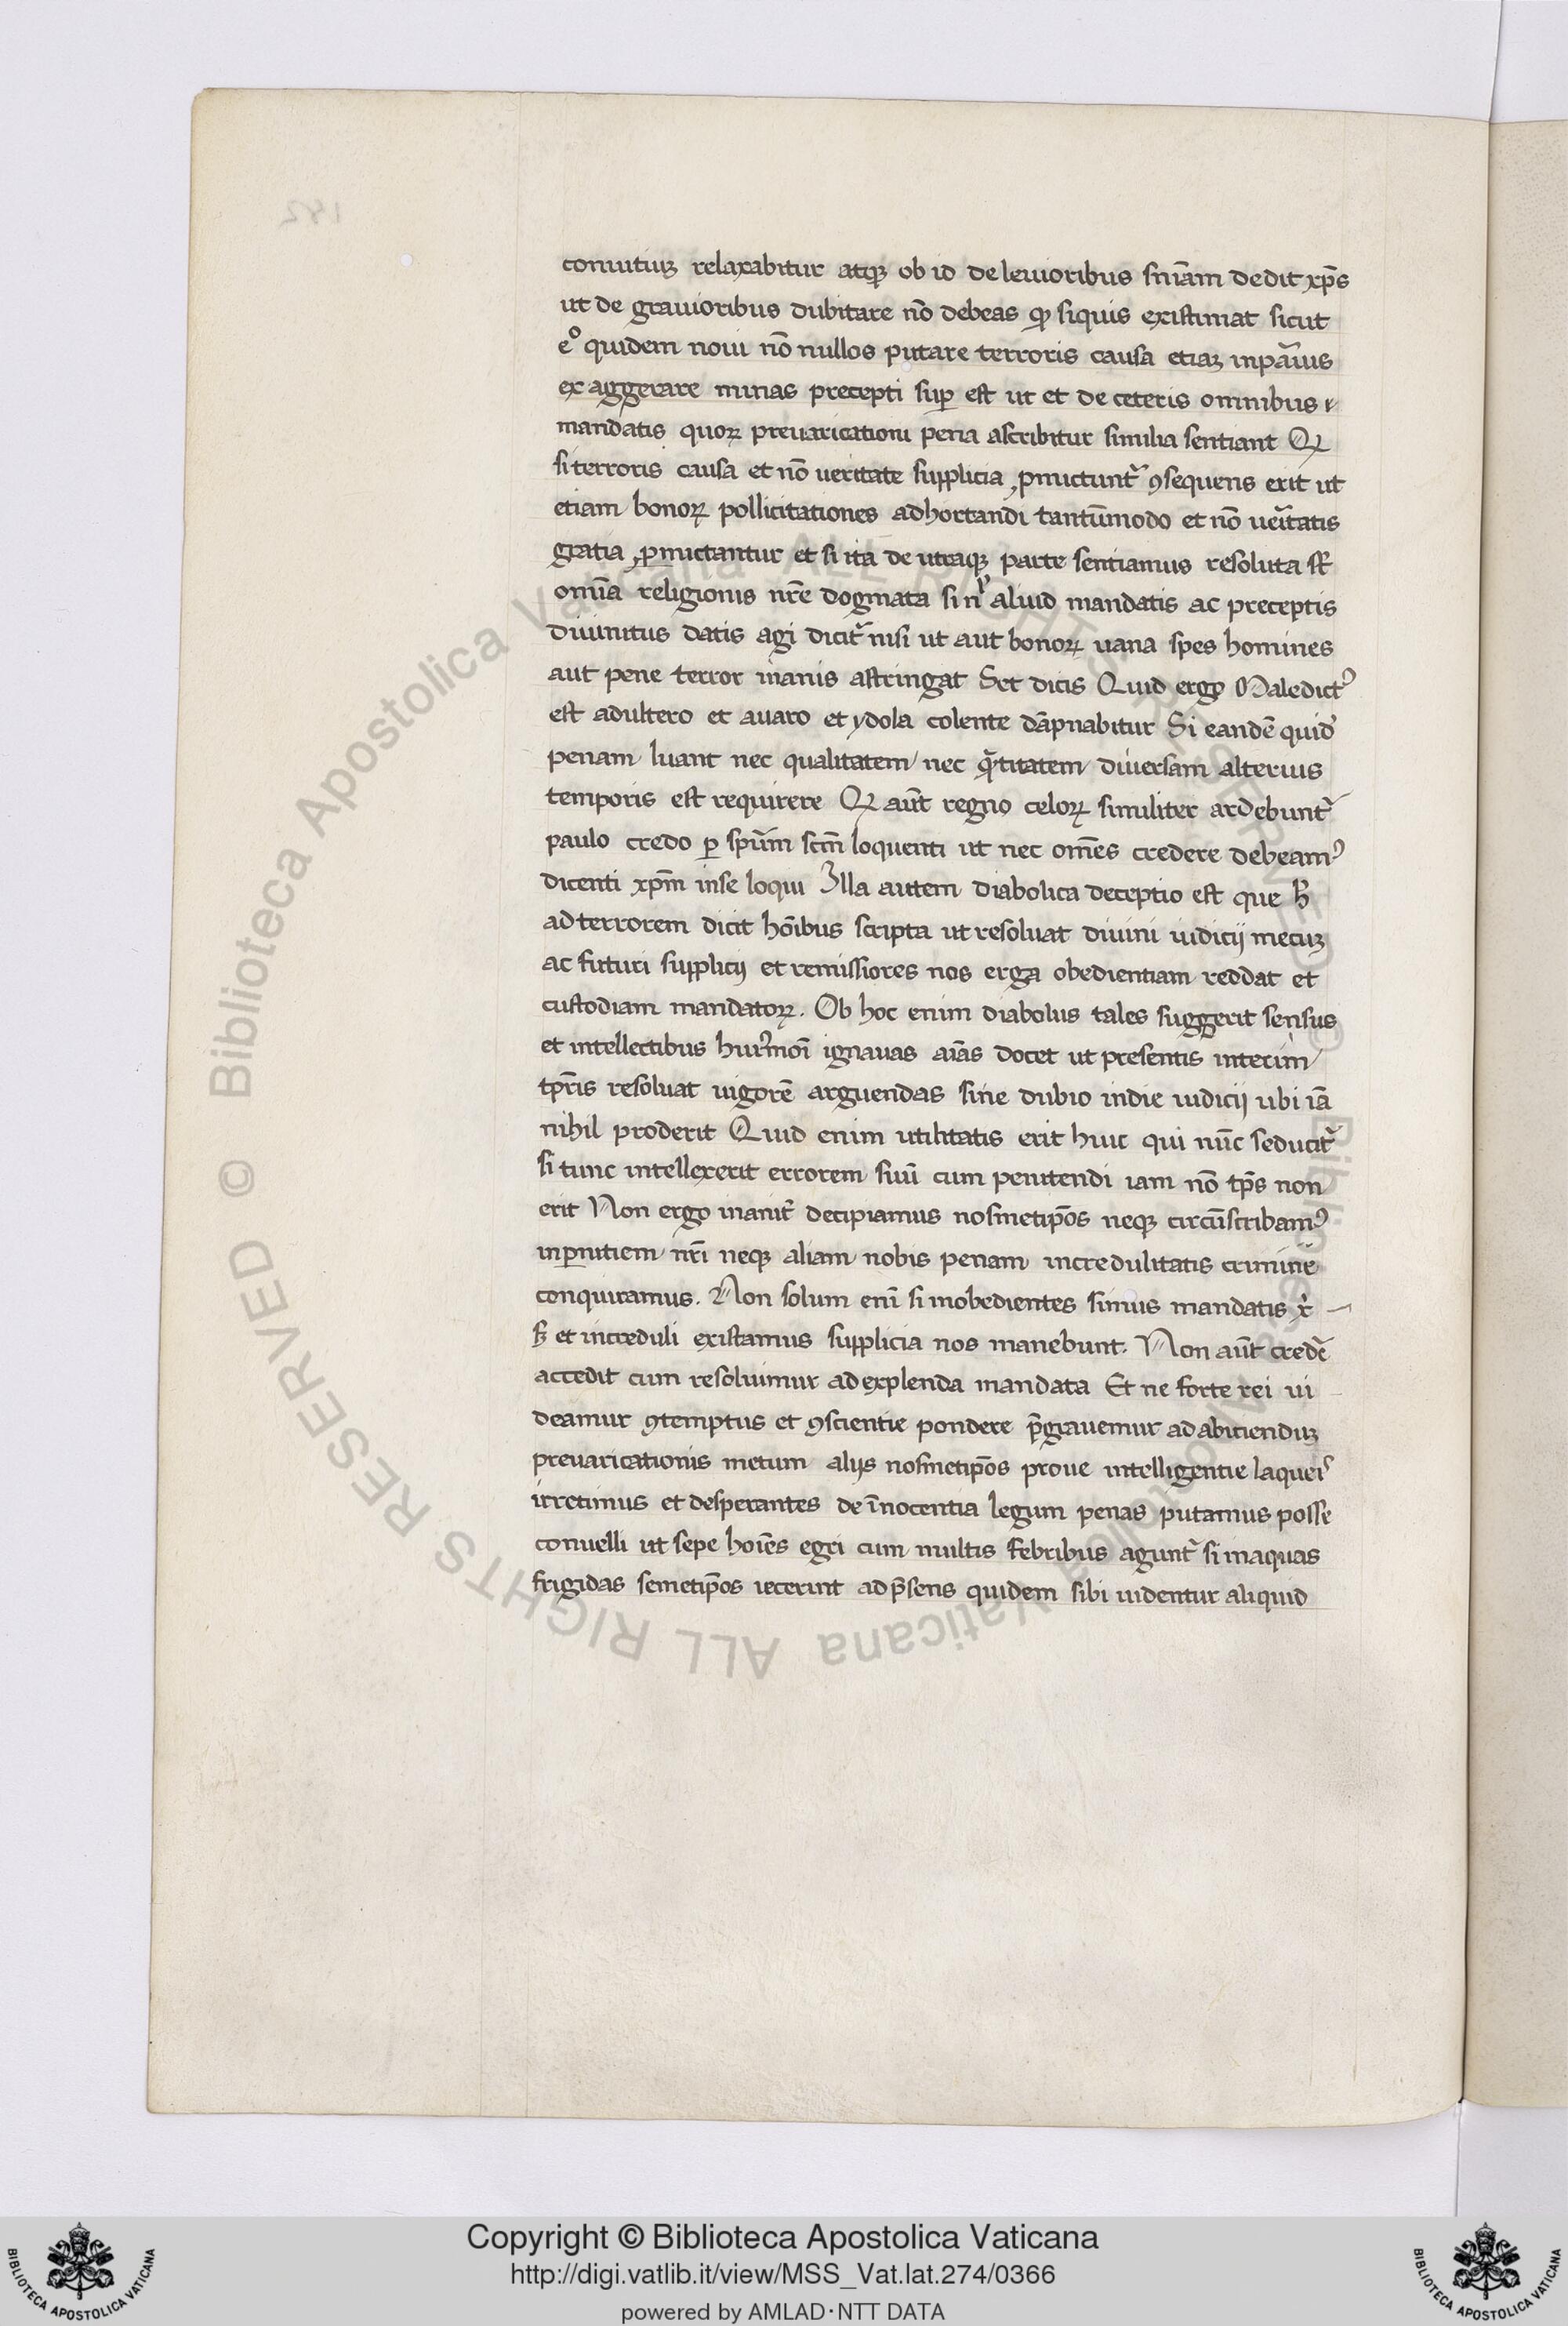 conuitiuꝫ relaxabitur atqꝫ ob id de leuioribus sn̄iam dedit xp̄s
ut de grauioribus dubitare nō debeas ꝙ siquis existimat sicut
eº quidem noui nō nullos putare terroris causa etiaꝫ
ex aggerare minas precepti suꝑ est ut et de ceteris omnibus
mandatis quoꝝ preuaricationi pena ascribitur similia sentiant
si terroris causa et nō ueritate supplicia ꝓmictunt᷑ ꝯsequens erit ut
etiam bonoꝝ pollicitationes adhortandi tantūmodo et nō ueĩtatis
gratia ꝓmictantur et si ita de utraqꝫ parte sentiamus resoluta
omīa religionis nr̄e dogmata si aliud mandatis ac preceptis
diuinitus datis agi dicit᷑ nisi ut aut bonoꝝ uana spes homines
aut pene terror inanis astringat Set dicis Quid ergo Maledictꝰ
est adultero et auaro et ydola colente dāpnabitur Si eandē quid̄
penam luant nec qualitatem nec q̄ntitatem diuersam alterius
temporis est requirere aūt regno celoꝝ similiter ardebunt᷑
paulo credo ꝑ spūm scm̄ loquenti ut nec om̄es credere debeamꝰ
dicenti xp̄m inse loqui Illa autem diabolica deceptio est que h̄
ad terrorem dicit hōibus scripta ut resoluat diuini iudicij metuꝫ
ac futuri supplicij et remissiores nos erga obedientiam reddat et
custodiam mandatoꝝ. Ob hoc enim diabolus tales suggerit sensus
et intellectibus ignauas aīas docet ut presentis interim
tp̄ris resoluat uigorē arguendas sine dubio indie iudicij ubi iā
nihil proderit Quid enim utilitatis erit huic qui nūc seducit᷑
si tunc intellexerit errorem suū cum penitendi iam nō tp̄s non
erit Non ergo inanit᷑ decipiamus nosmetip̄os neqꝫ circūscribamꝰ
inꝑnitiem nr̄i neqꝫ aliam nobis penam incredulitatis criminē
conquiramus. Non solum enī si inobedientes simus mandatis
sꝫ et increduli existamus supplicia nos manebunt. Non aūt credē
accedit cum resoluimur ad explenda mandata Et ne forte rei ui
deamur ꝯtemptus et ꝯscientie pondere p̄grauemur ad abitienduꝫ
preuaricationis metum alijs nosmetip̄os proue intelligentie
irretimus et desperantes de īnocentia legum penas putamus posse
conuelli ut sepe hoīes egri cum multis febribus agunt᷑ si inaquas
frigidas semetip̄os iecerint ad p̄sens quidem sibi uidentur aliquid
Copyright © Biblioteca Apostolica Vaticana
http://digi.vatlib.it/view/MSS_Vat.lat.274/0366
powered by AMLAD·NTT DATA